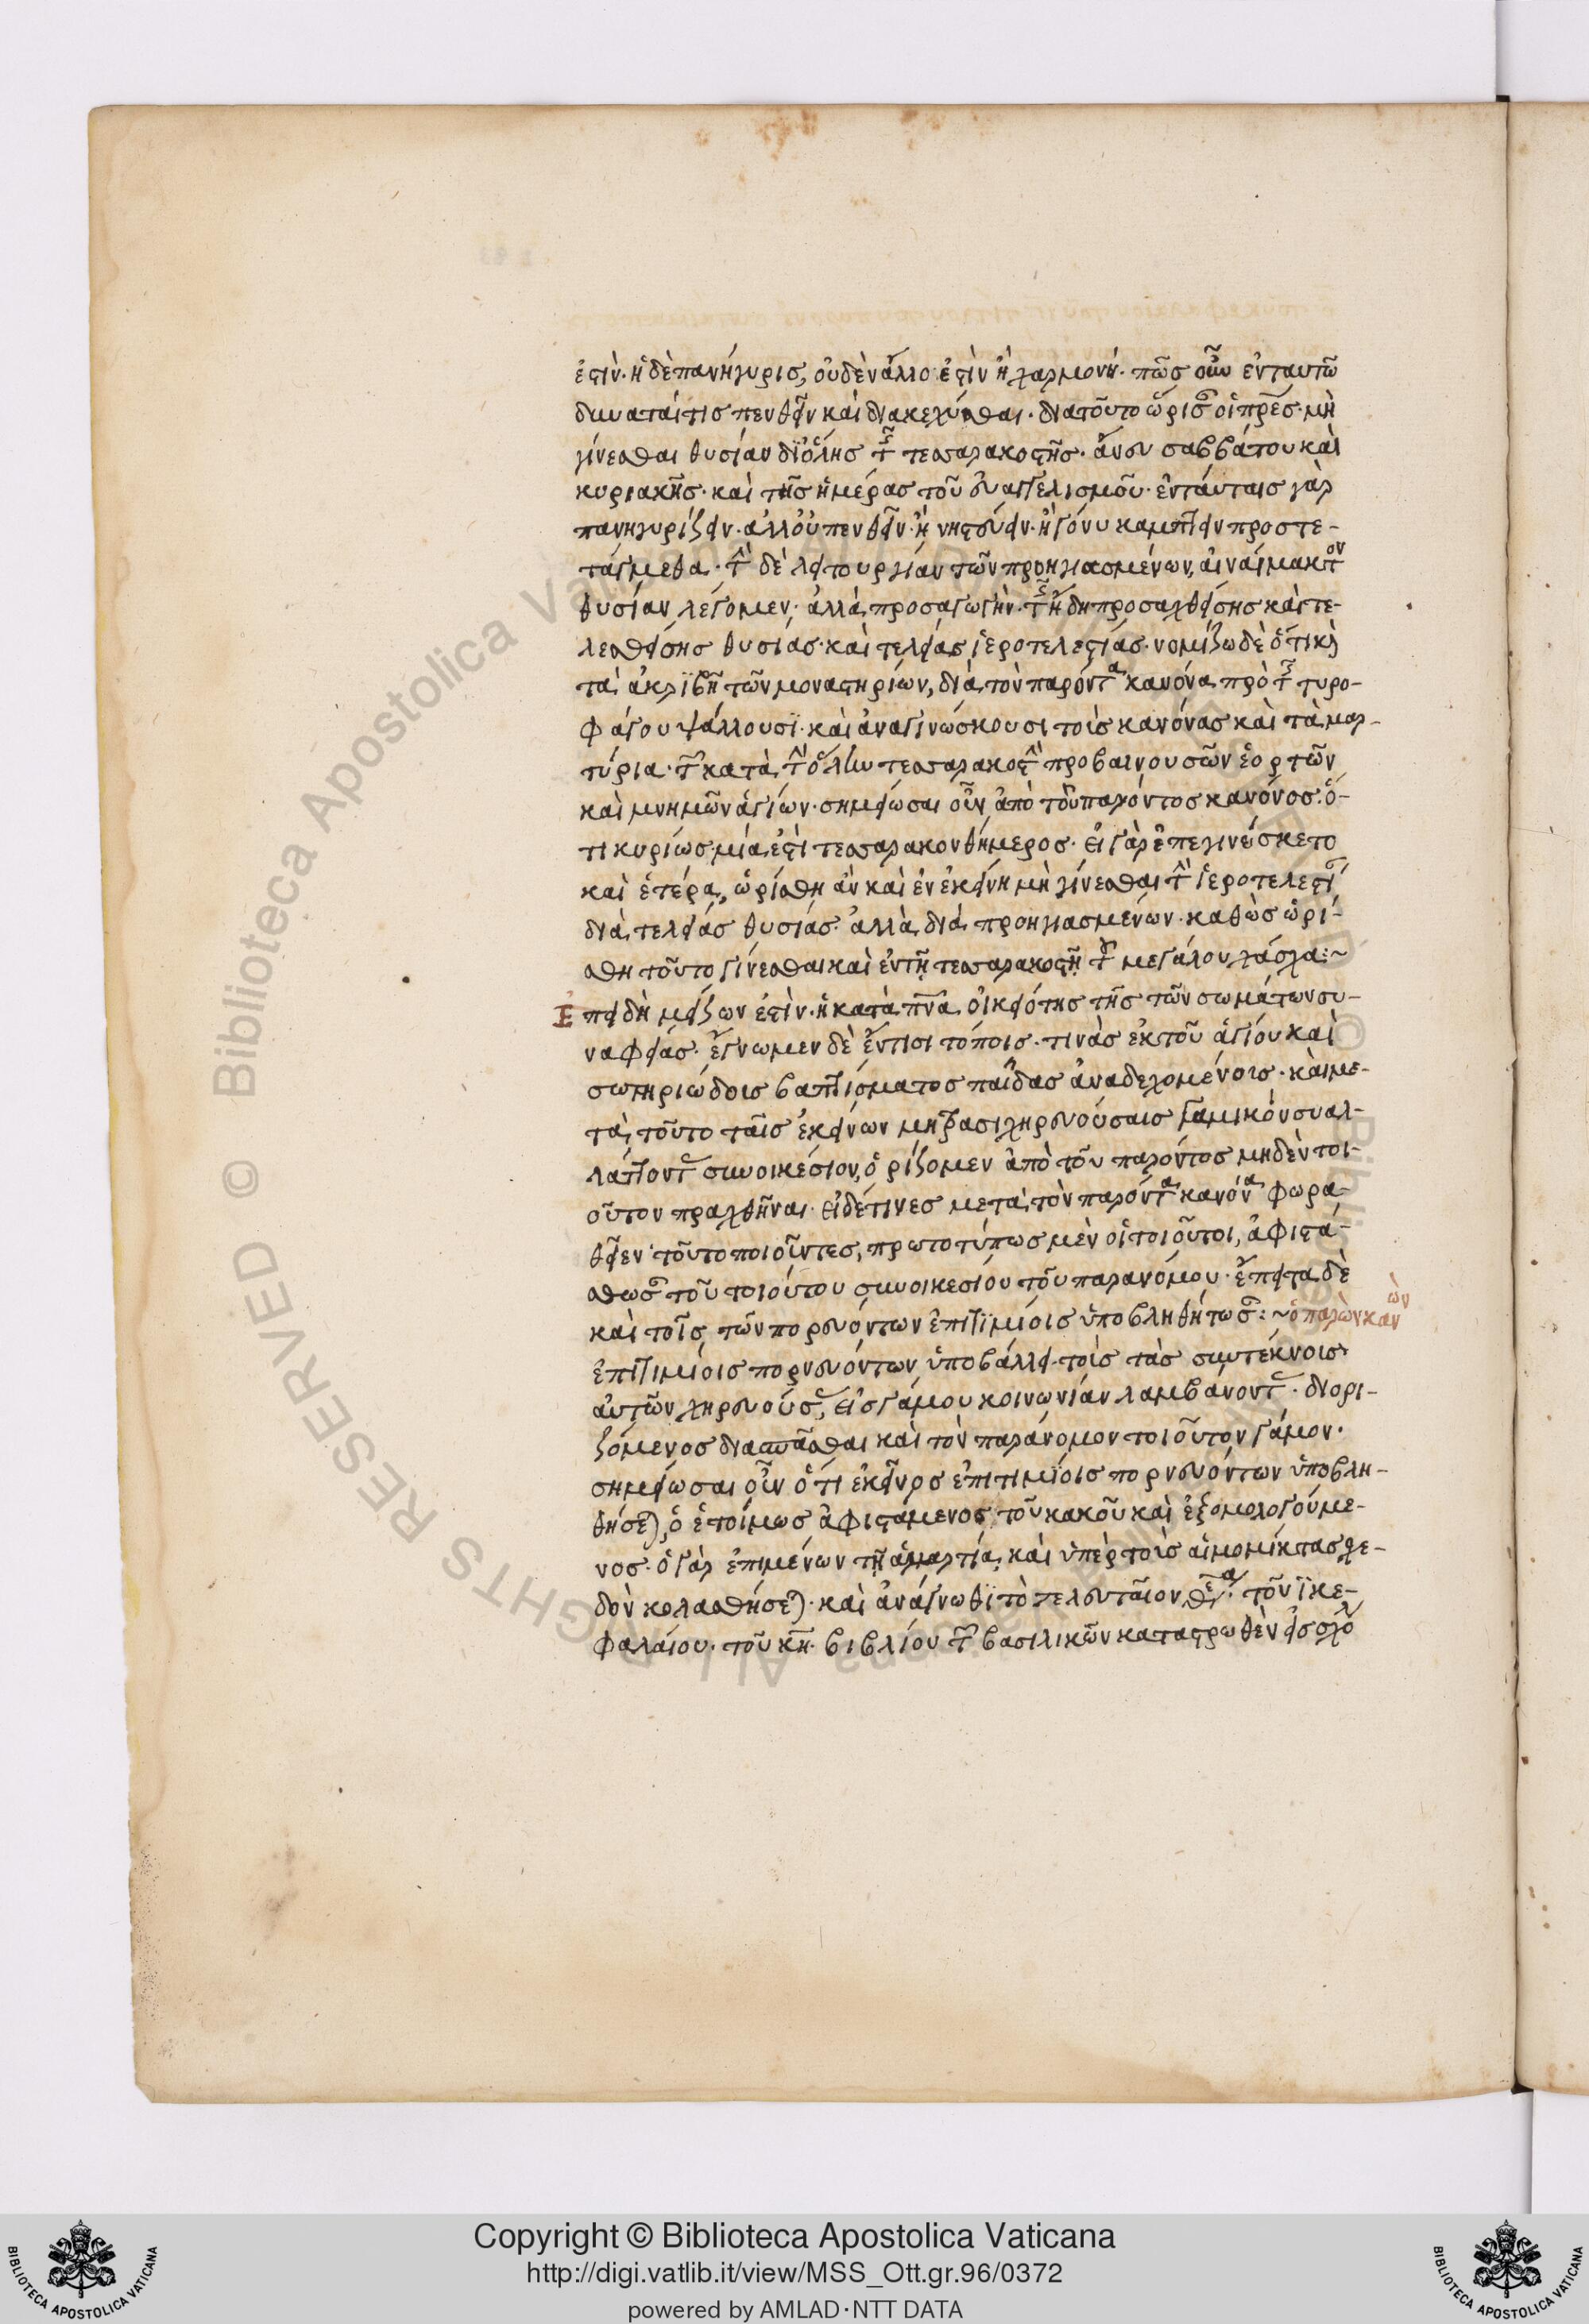 ἐστὶν· ἡ δὲ πανήγυρις, οὐδὲν ἄλλο ἐστὶν ἢ χαρμονή· πῶς οὖν ἐν ταυτῶ
δύναταί τις πενθεῖν καὶ διακεχύσθαι· διατοῦτο ὥρισαν οἱ πρες· μὴ
γίνεσθαι θυσίαν δϊόλης τῆς τεσσαρακοστῆς· ἄνευ σαββάτου καὶ
κυριακῆς· καὶ τῆς ἡμέρας τοῦ εὐαγγελισμοῦ· ἐν ταύταις γὰρ
πανηγυρίζειν· ἀλλ οὐ πενθεῖν· ἢ νηστεύειν· ἢ γόνυ κάμπτειν προστε-
τάγμεθα· τὴν δὲ λειτουργίαν τῶν προηγιασμένων, ἀναίμακτον
θυσίαν λέγομεν· ἀλλὰ προσαγωγὴν· τῆς ἤδη προσαχθείσης καὶ τε-
λεσθείσης θυσίας· καὶ τελείας ἱεροτελεστίας· νομίζω δὲ ὅτι καὶ
τὰ ἀκρϊβῆ τῶν μοναστηρίων, διὰ τὸν παρόντα κανόνα πρὸ τῆς τυρο-
φάγου ψάλλουσϊ· καὶ ἀναγινώσκουσι τοὺς κανόνας καὶ τὰ μαρ-
τύρια· τῶν κατὰ τὴν ὅλην τεσσαρακοστὴν προβαινουσῶν ἑορτῶν
καὶ μνημῶν ἁγίων· σημείωσαι οὖν ἀπὸ τοῦ παρόντος κανόνος· ὅ-
τι κυρίως μία ἐστὶ τεσσαρακονθήμερος· εἰ γὰρ ἐπεγινώσκετο
καὶ ἑτέρα, ὡρίσθη ἂν καὶ ἐν ἐκείνη μὴ γίνεσθαι τὴν ἱεροτελεστίαν
διὰ τελείας θυσίας· ἀλλὰ διὰ προηγιασμένων· καθὼς ὡρί-
σθη τοῦτο γίνεσθαι καὶ ἐν τῆ τεσσαρακοστῆ τοῦ μεγάλου πάσχα:~
Ἐπειδὴ μείζων ἐστὶν· ἡ κατὰ πνα οἰκειότης τῆς τῶν σωμάτων συ-
ναφείας· ἔγνωμεν δὲ ἔν τισι τόποις· τινὰς ἐκ τοῦ ἁγίου καὶ
σωτηριώδους βαπτίσματος παῖδας ἀναδεχομένους· καὶ με-
τὰ τοῦτο ταῖς ἐκείνων μητράσι χηρευούσαις γαμικὸν συναλ-
λάττοντας συνοικέσιον, ὁρίζομεν ἀπὸ τοῦ παρόντος μηδὲν τοι-
οῦτον πραχθῆναι· εἰ δέ τινες μετὰ τὸν παρόντα κανόνα φωρα-
θεῖεν τοῦτο ποιοῦντες, πρωτοτύπως μὲν οἱ τοιοῦτοι, ἀφιστά-
σθωσαν τοῦ τοιούτου συνοικεσίου τοῦ παρανόμου· ἔπειτα δὲ
καὶ τοῖς τῶν πορνευόντων ἐπιτϊμίοις ὑποβληθήτωσαν:~ ὁ παρὼν κανών
ἐπιτιμίοις πορνευόντων ὑποβάλλει τοὺς τὰς συντέκνους
αὐτῶν χηρευούσας, εἰς γάμου κοινωνίαν λαμβάνοντας· διορι-
ζόμενος διασπᾶσθαι καὶ τὸν παράνομον τοιοῦτον γάμον·
σημείωσαι οὖν ὅτι ἐκεῖνος ἐπιτιμΐοις πορνευόντων ὑποβλη-
θήσεται, ὁ ἑτοίμως ἀφιστάμενος τοῦ κακοῦ καὶ ἐξομολογούμε-
νος· ὁ γὰρ ἐπιμένων τῆ ἁμαρτία, καὶ ὑπὲρ τοὺς αἱμομίκτας σχε-
δὸν κολασθήσεται· καὶ ἀνάγνωθϊ τὸ τελευταῖον θέμα· τοῦ ιϊ κε-
φαλαίου· τοῦ κη· βιβλίου τῶν βασιλικῶν καταστρωθὲν εἰς σχό